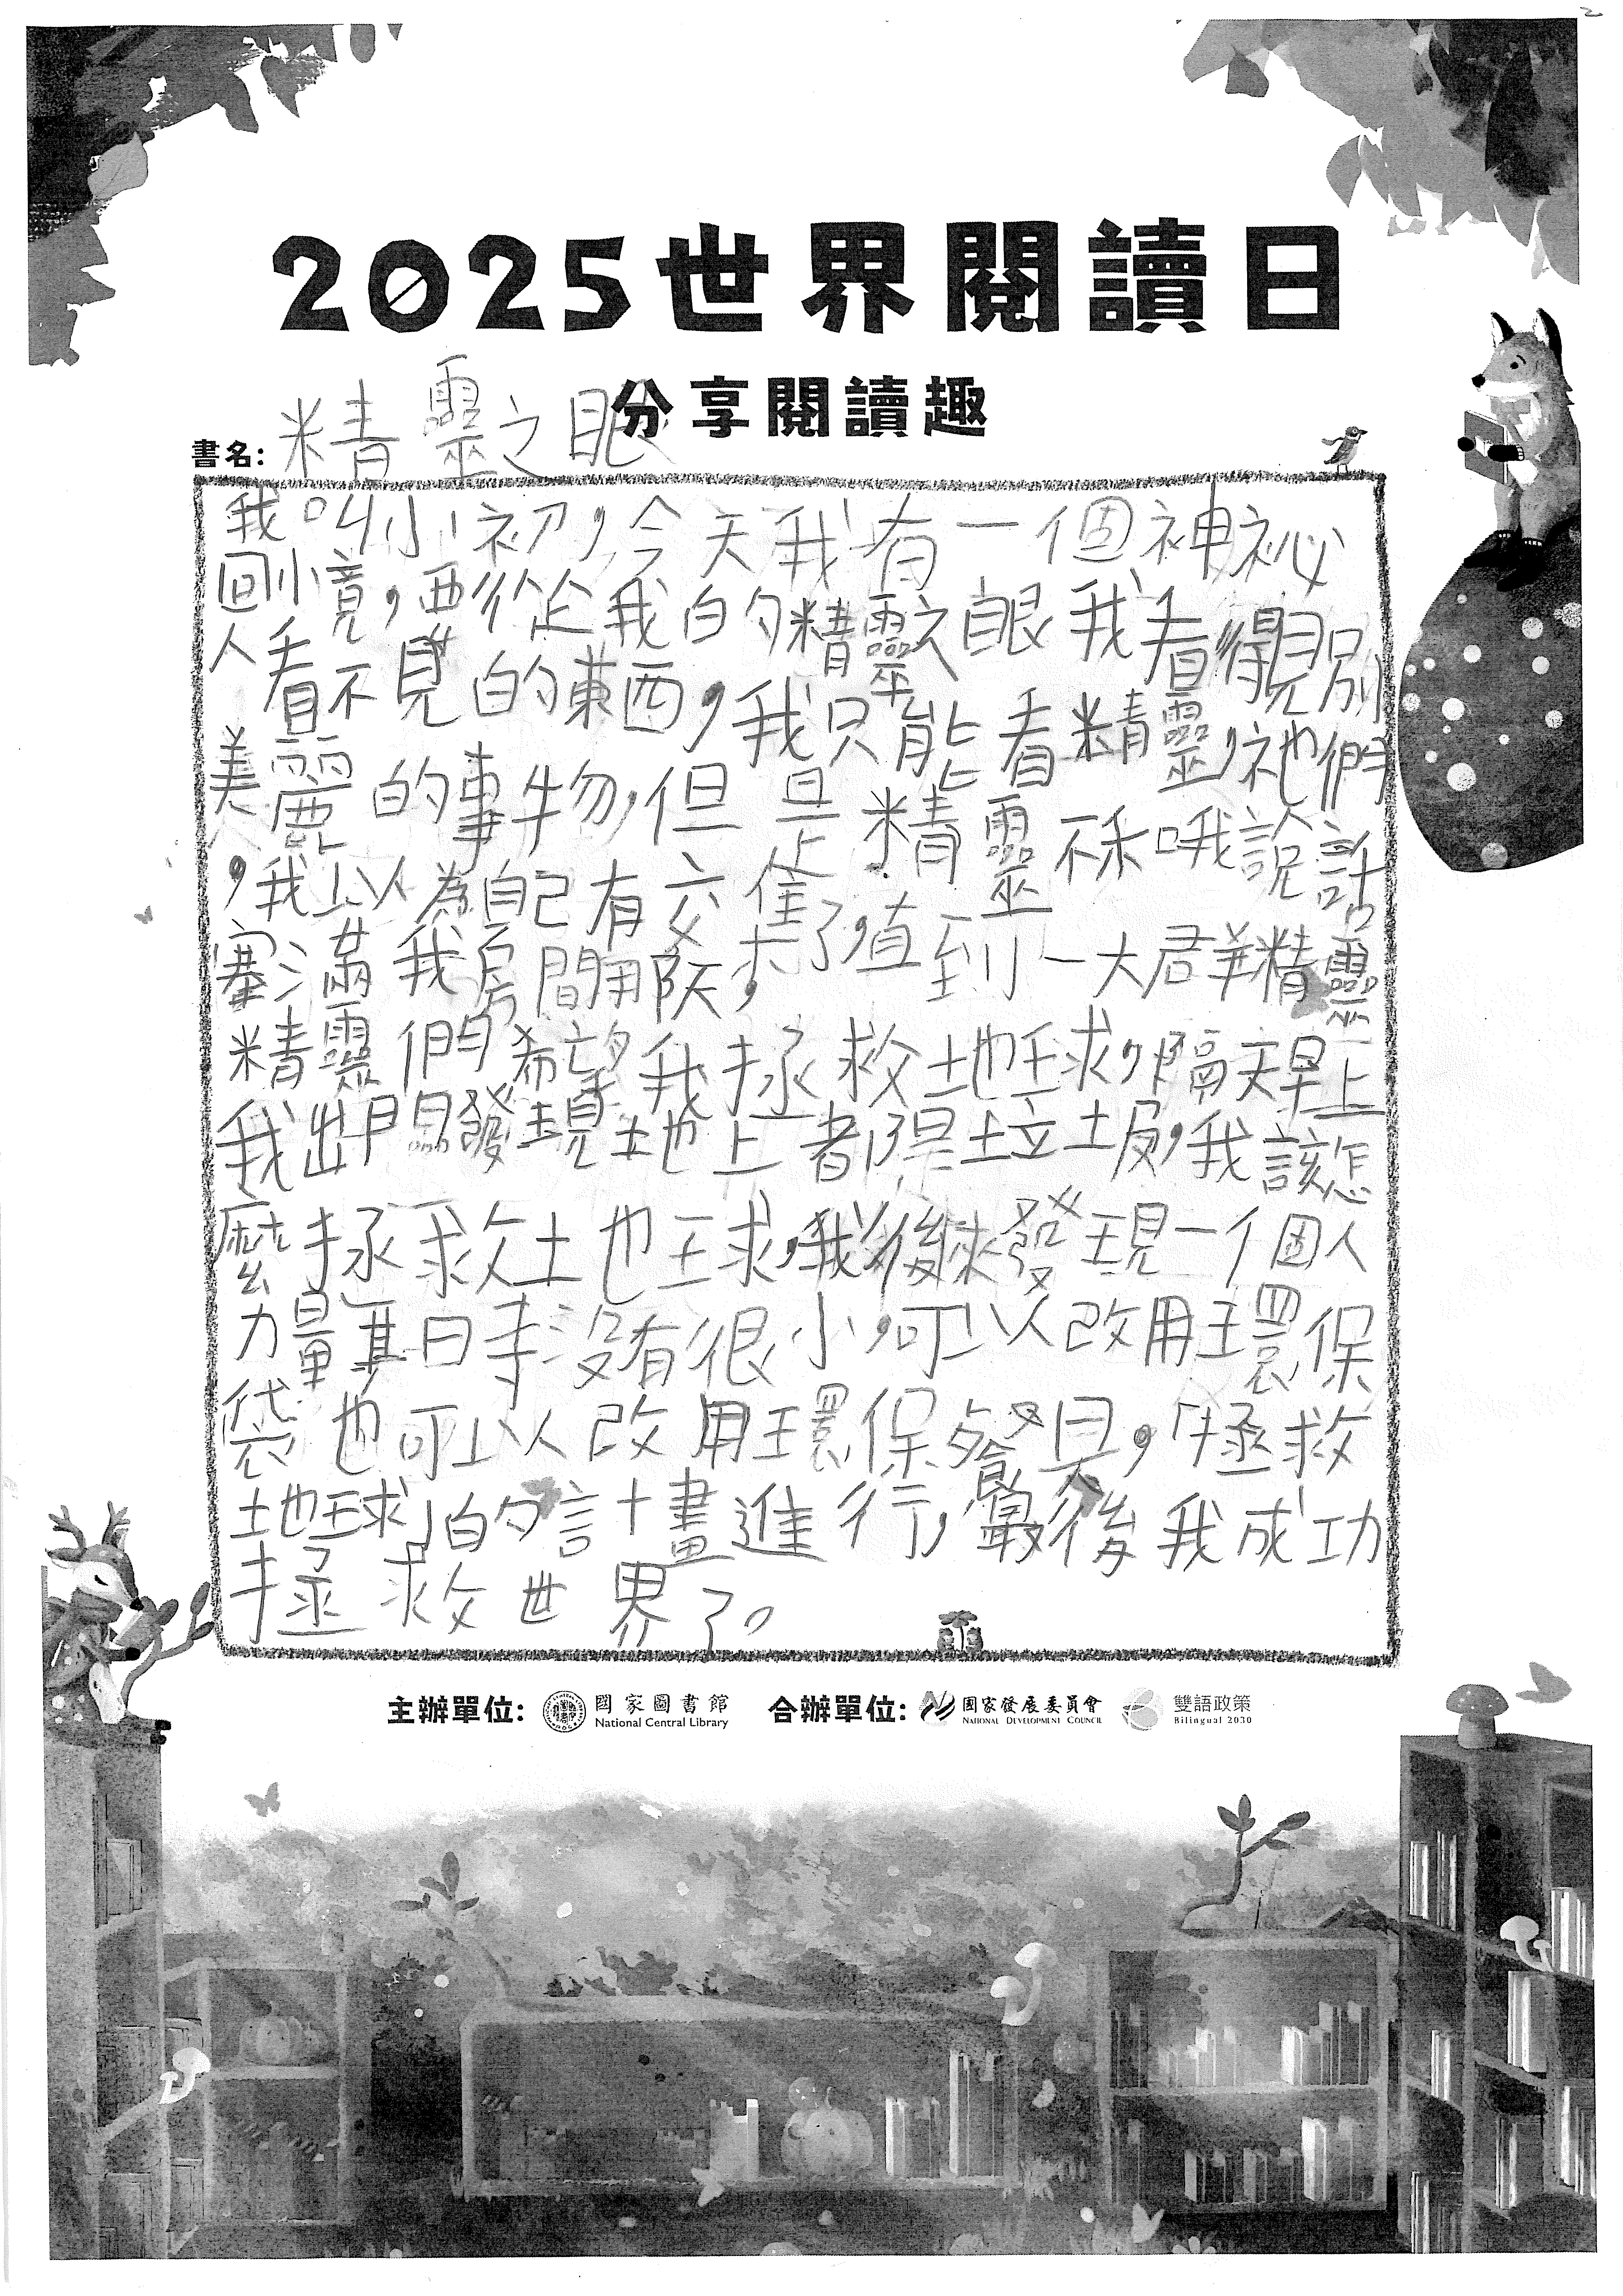 2025世界閱讀日
分享閱讀趣
書名: 精靈之眼
我叫小初,今天我有一個神祕
回憶,要從我的精靈之眼我看得見別
人看不見的東西,我只能看精靈,祂們
美麗的事物,但是精靈不和哦說話
,我以為自己有交集了,直到一大群精靈
塞滿我房間,
精靈們希望我拯救地球,隔天早上
我出門發現地上都是垃圾,我該怎
麼拯救地球,我後來發現一個人
力量其時沒有很小,可以改用環保
袋也可以改用環保餐具,拯救
地球的計畫進行,最後我成功
拯救世界了。
主辦單位: 國家圖書館 合辦單位: 國家發展委員會 雙語政策
National Central Library NATIONAL DEVELOPMENT COUNCIL Bilingual 2030